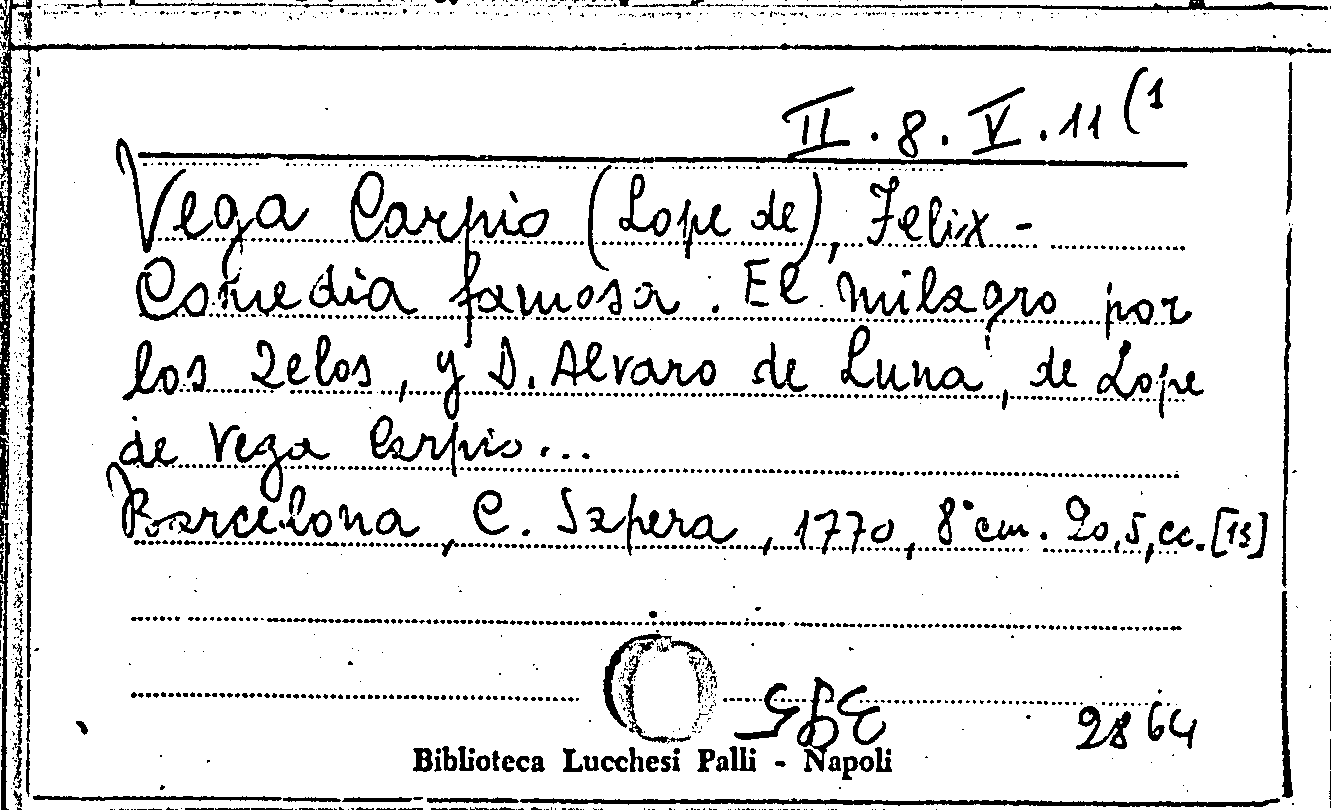 II.8.V.11(1
Vega Carpio (Lope de), Felix -
Comedia famosa. El milagro por
los Zelos, y D. Alvaro de Luna, de Lope
de Vega Carpio...
Barcelona, C. Sapera, 1770, 8° cm. 20,5, cc. [19]
2864
Biblioteca Lucchesi Palli - Napoli